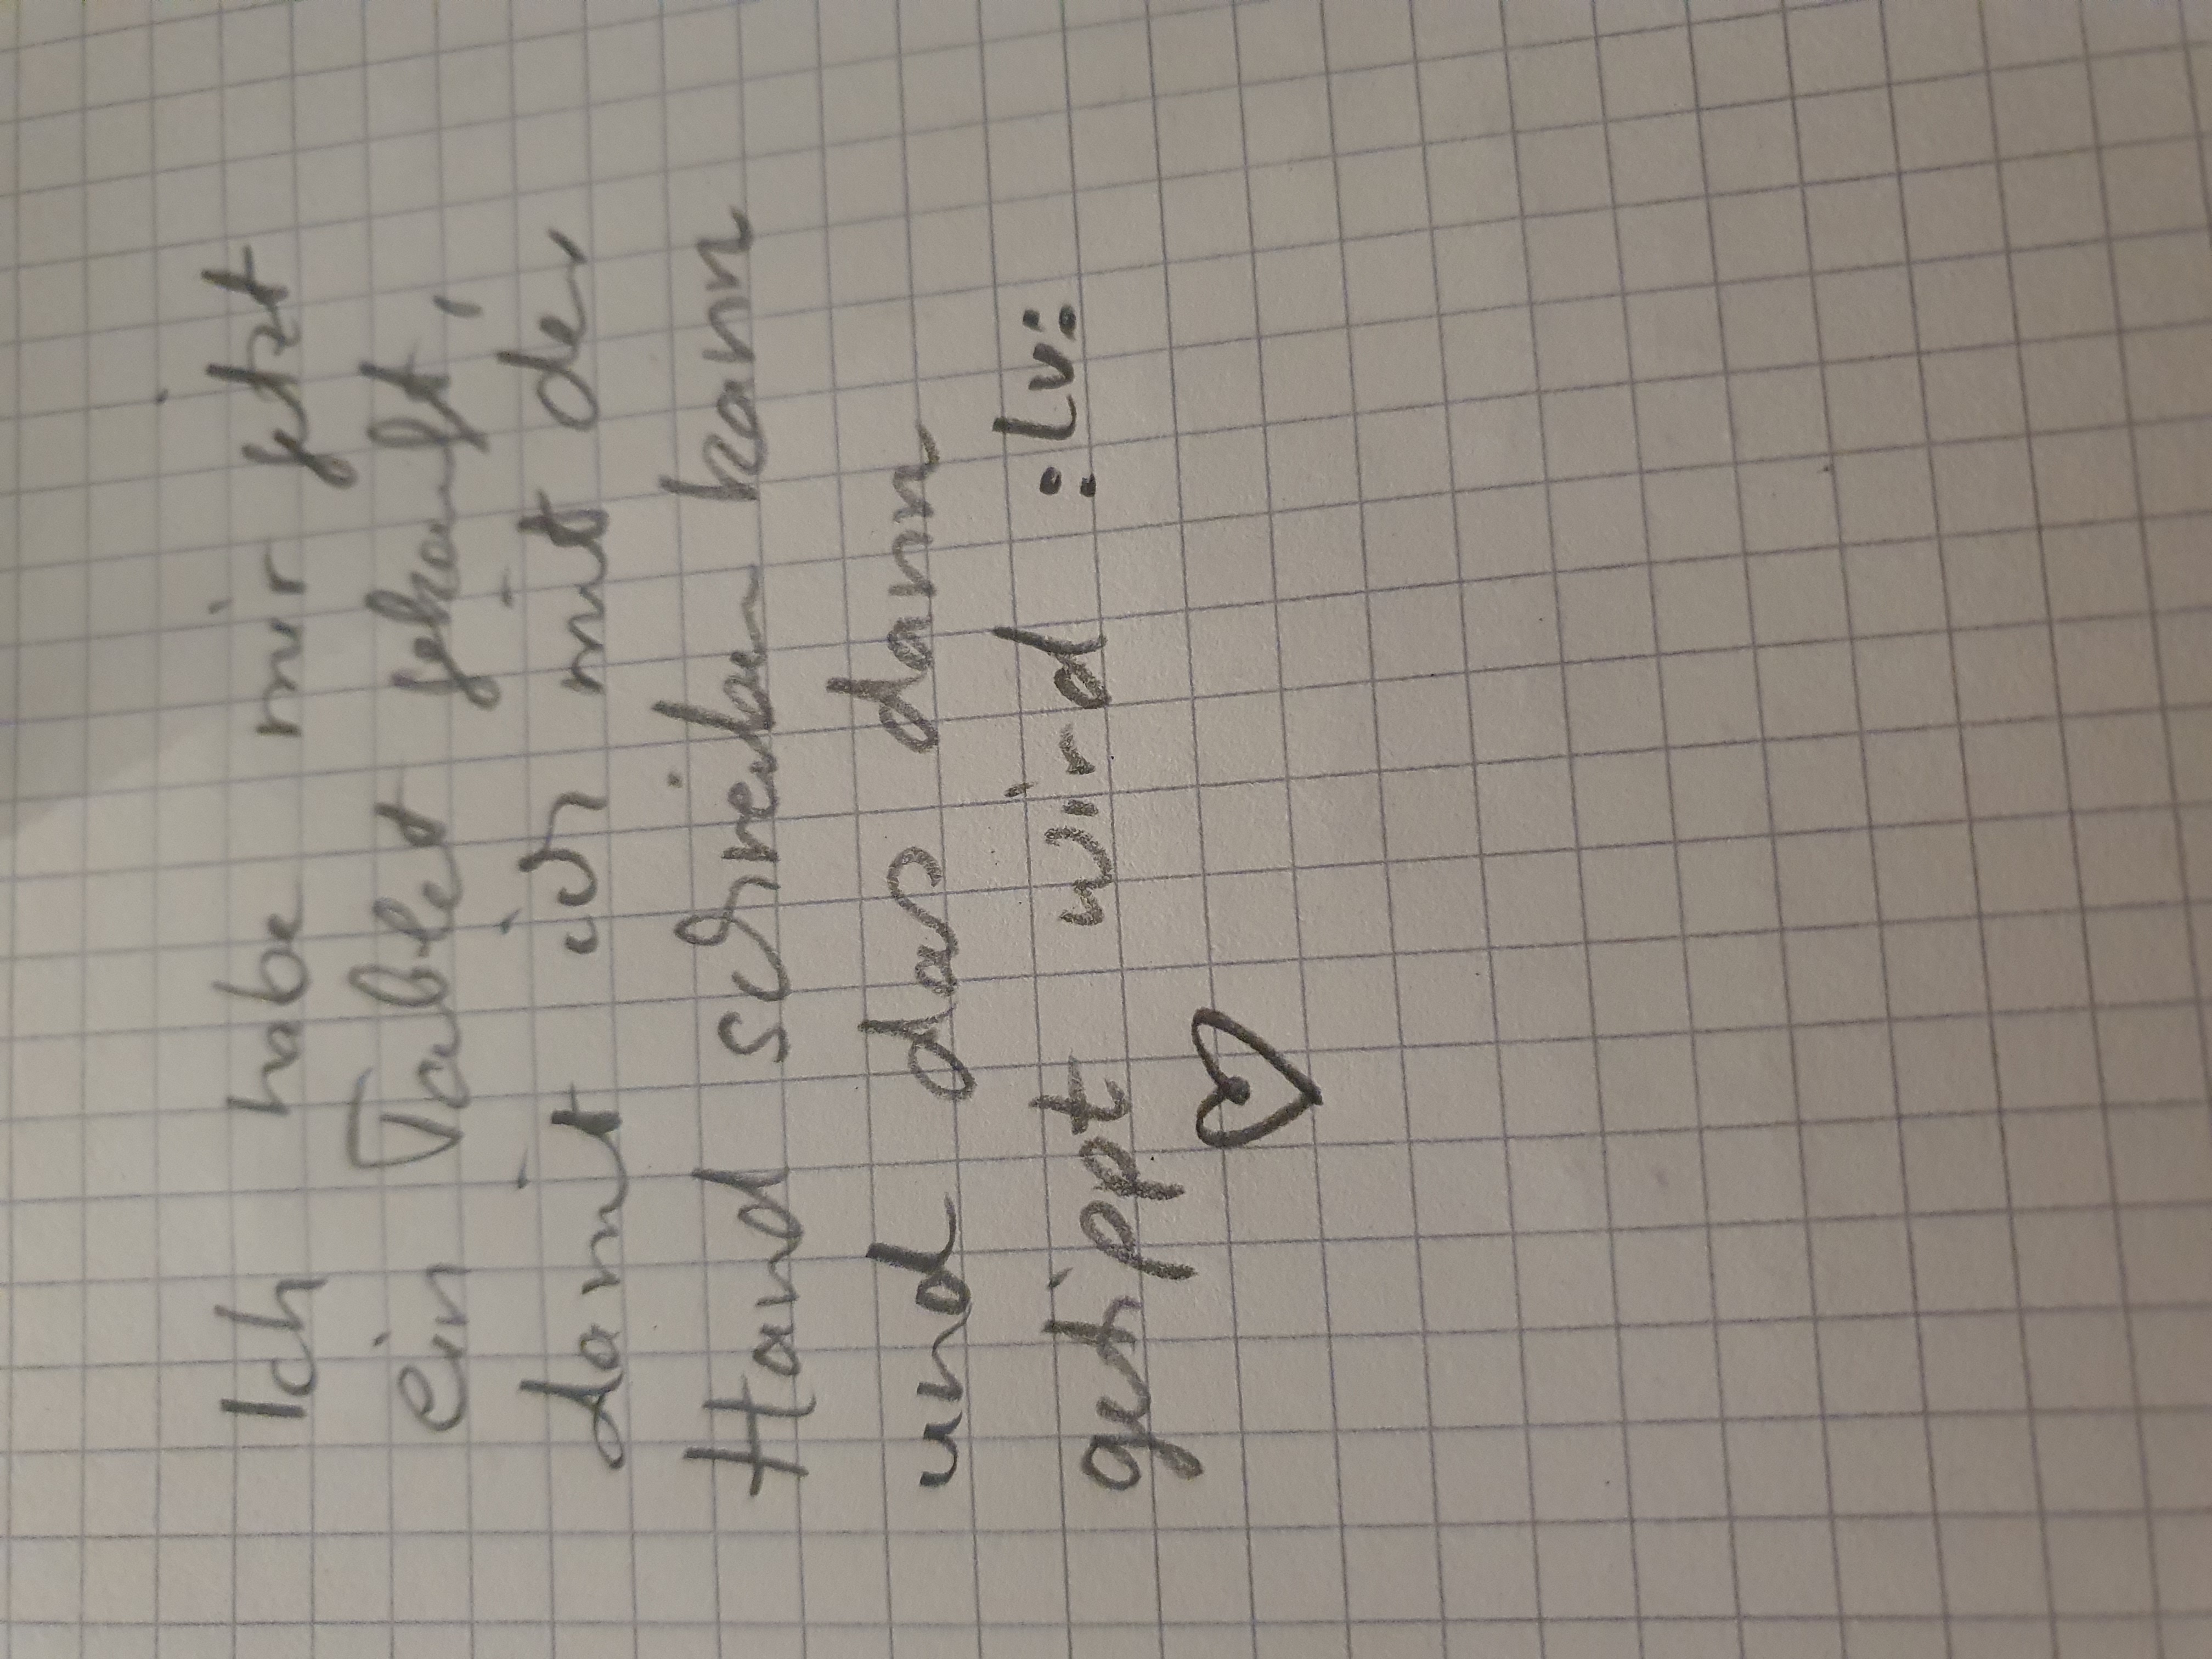 Ich habe mir jetzt
ein Tablet gekauft,
damit ich mit der
Hand schreiben kann
und das dann
getippt wird :Lv: